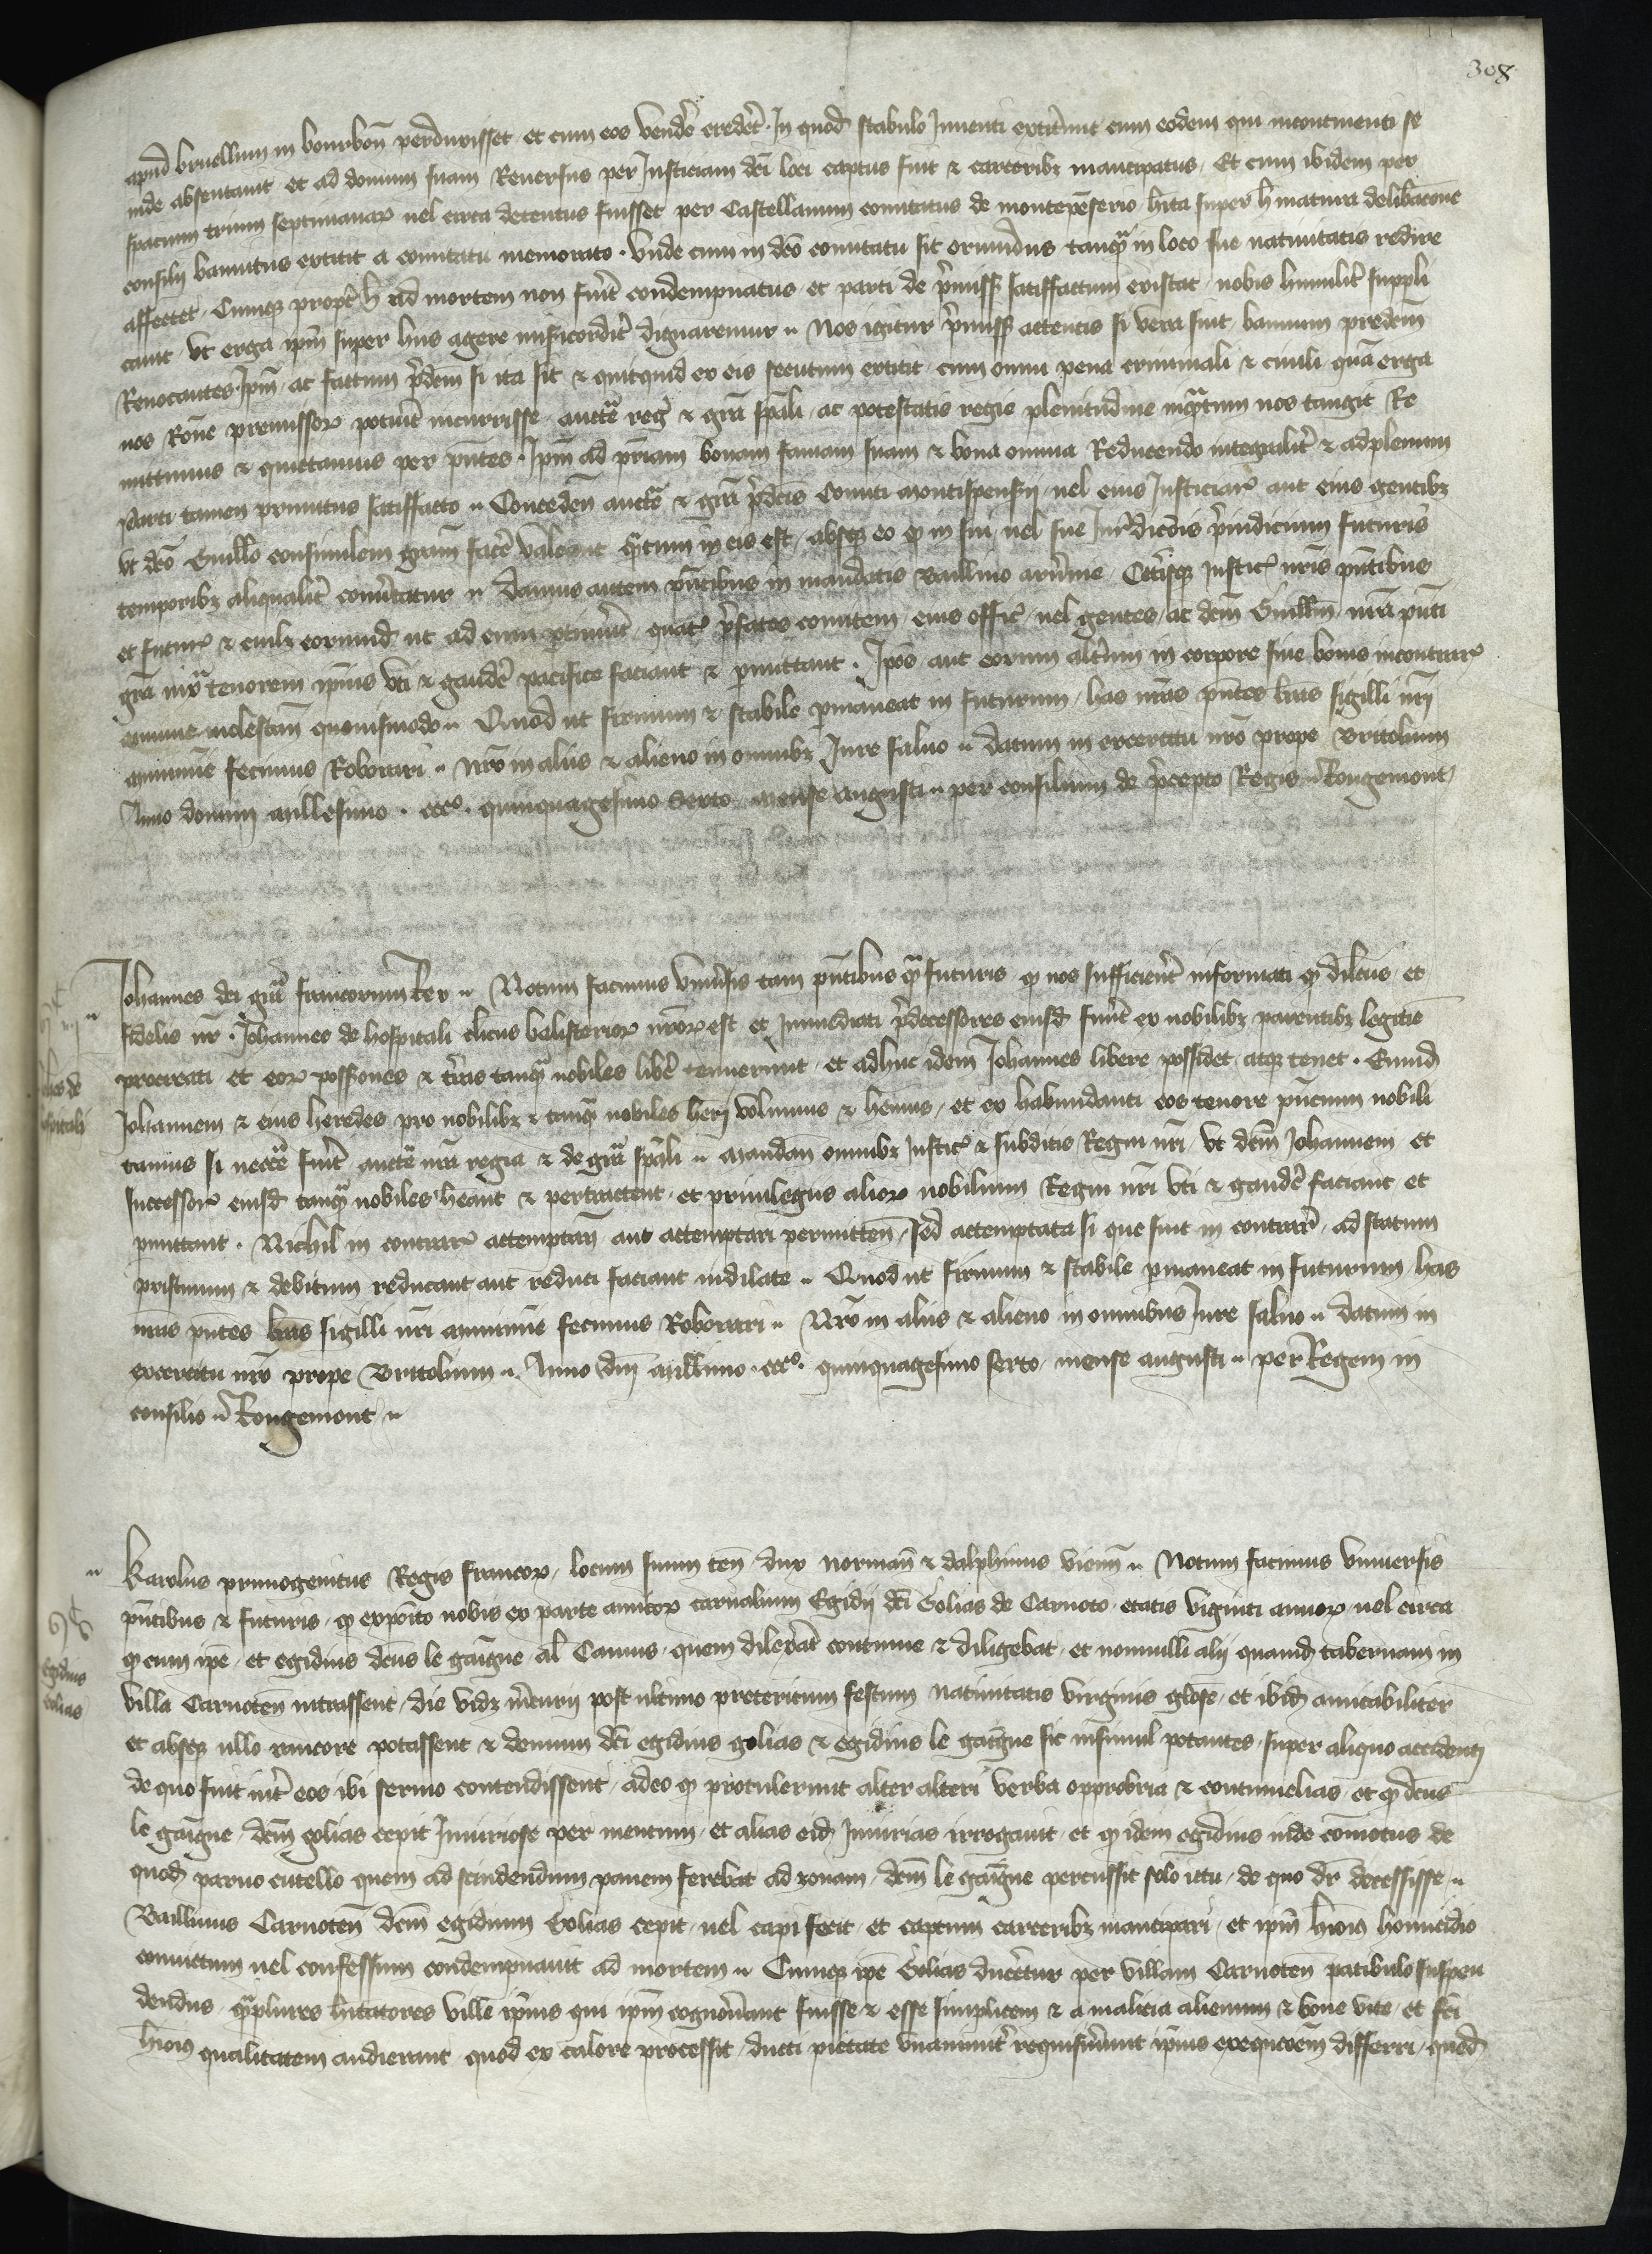 308
apud bruellum in bourbon̄ perduxisset et cum eos vendr̄e credēt. In quod stabulo Inuenti extiterunt cum eodem qui incontinenti se
inde absentauit et ad domum suam Reuersus per Justiciam dc̄i loci captus fuit & carceribz mancipatus. Et cum ibidem per
spacium trium septimanaꝝ uel circa detentus fuisset per Castellanum comitatus de montepēserio hīta super h̄ matura delibac̄one
consilij bannitus extitit a comitatu memorato. Vnde cum in dc̄o comitatu sit oriundus tanqͣ in loco sue natiuitatis redire
affectet. Cumqz propt̄ h̄ ad mortem non fuit condempnatus et parti de p̄miss satisfactum existat nobis humilit̄ suppli
cauit vt erga ip̄m super hiis agere mis̄icordit̄ dignaremur. Nos igitur p̄miss attentis si vera sint bannum predc̄m
Reuocantes Ip̄m ac factum p̄dc̄m si ita sit & quicquid ex eis secutum extitit cum omni pena criminali & ciuili quā erga
nos Rōne premissoꝝ potuit incurrisse auct̄e reḡ & grā sp̄ali ac potestatis regie plenitudine inqͣtum nos tangit Re
mittimus & quittamus per pn̄tes. Ip̄m ad pr̄iam bonam famam suam & bona omnia Reducendo integralit̄ & adplenum
parti tamen primitus satisffacto. Conceden̄ auct̄e & grā p̄dc̄is Comiti montispenserij uel eius Justiciaꝝ aut eius gentibz
vt dc̄o Guill̄o consimilem grām facere valeant qͣtum in eis est absqz eo qꝫ in sui uel sue Jur̄dicc̄ōis p̄iudicium futuris
temporibz aliqualit̄ conuertatur. Damus autem pn̄tibus in mandatis Baill̄iuo aruernie Cet̄isqz Justic̄ nr̄is pn̄tibus
et futuꝝ & cuilz eorumd̄ ut ad eum ꝑtinuit quat̄ p̄fatos comitem eius offic̄ uel gentes ac dc̄m Guill̄m nr̄a pn̄ti
grā iuxͣ tenorem ip̄ius vti & gaudere pacifice faciant & ꝑmittant. Ip̄os aut eorum alt̄um in corpore siue bonis incontrar̄
minime molestan̄ quouismodo. Quod ut firmum & stabile ꝑmaneat in futurum has nr̄as pn̄tes lr̄as sigilli nr̄i
munimīe fecimus Roborari. Nr̄o in aliis & alieno in omnibz Jure saluo. Datum in excercitu nr̄o prope Britolium
Anno domini millesimo. ccc°. quinquagesimo Sexto mense augusti. per consilium de p̄cepto Regis. Rougemont
Johannes dei grā francorum Rex. Notum facimus vniu̅sis tam pn̄tibus qͣ futuris qꝫ nos sufficient̄ informati qꝫ dilc̄us et
fidelis nr̄. Johannes de hospitali clicus balisterioꝝ nr̄oꝝ est et Immediati p̄decessores eiusd̄ fuert̄ ex nobilibz parentibz legitīe
procreati et eoꝝ possōnes & tr̄ras tanqͣ nobiles lib̄e tenuerunt et adhuc idem Johannes libere possidet atqz tenet. Eund̄
Johannem & eius heredes pro nobilibz & tanqͣ nobiles h̄eri volumus & hēmus et ex habundanti eos tenore pn̄cium nobili
tamus si nec̄cē fuit auct̄e nr̄a regia & de grā sp̄ali. Mandan̄ omnibz Justic̄ & subditis Regni nr̄i vt dc̄m Johannem et
successoꝝ eiusd̄ tanqͣ nobiles h̄eant & pertractent et priuilegiis alioꝝ nobilium Regni nr̄i vti & gaudere faciant et
ꝑmittant. Nichil in contraꝝ attemptan̄ aut attemptari permitten̄ sed attemptata si que sint in contrar̄ ad statum
pristinum & debitum reducant aut reduci faciant indilate. Quod ut firmum & stabile ꝑmaneat in futurum has
nr̄as pn̄tes lr̄as sigilli nr̄i munimīe fecimus Roborari. Nr̄o in aliis & alieno in omnibus Jure saluo. Datum in
excercitu nr̄o prope Britolium. Anno Dn̄i mill̄imo. ccc°. quinquagesimo sexto mense augusti. per Regem in
consilio. Rougemont.
Karolus primogenitus Regis francoꝝ locum suum ten̄ dux norman̄ & dalphinus vienn̄. Notum facimus vniuersis
pn̄tibus & futuris qꝫ exp̄oito nobis ex parte amicoꝝ carnalium Egidij dc̄i Golias de Carnoto etatis viginti annoꝝ uel circa
qꝫ cum ip̄e et egidius dc̄us le gaigne al̄ Camus quem dilex̄at continue & diligebat et nonnulli alij quamd̄ tabernam in
villa Carnoten̄ intrassent die vidz m̄curij post ultimo preteritum festum natiuitatis virginis glōse et ibid̄ amicabiliter
et absqz ullo rancore potassent & demum dc̄i egidius golias & egidius le gaigne sic insimul potantes super aliquo accidenti
de quo fuit int̄ eos ibi sermo contendissent adeo qꝫ protulerunt alter alteri verba opprobria & contumelias et qꝫ dc̄us
le gaigne dc̄m golias cepit Iniuriose per mentum et alias eid̄ Iniurias irrogauit et qꝫ idem egidius inde cōmotus de
quod̄ paruo cutello quem ad scindendum panem ferebat ad zonam dc̄m le gaigne percussit solo ictu de quo dr̄ decessisse.
Baillius Carnoten̄ dc̄m egidium Golias cepit uel capi fecit et captum carceribz mancipari et ip̄m h̄iōi homicidio
conuictum uel confessum condempnauit ad mortem. Cumqz ip̄e Golias duceretur per villam Carnoten̄ patibulo suspen
dendus qͣ plures h̄itatores ville ip̄ius qui ip̄m cognou̅ant fuisse & esse simplicem & a malicia alienum & bone vite et fc̄i
h̄iōi qualitatem audierant quod ex calore processit ducti pietate vnanimit̄ requisiu̅unt ip̄ius exequcōem differri quod̄
Egidius
Golias